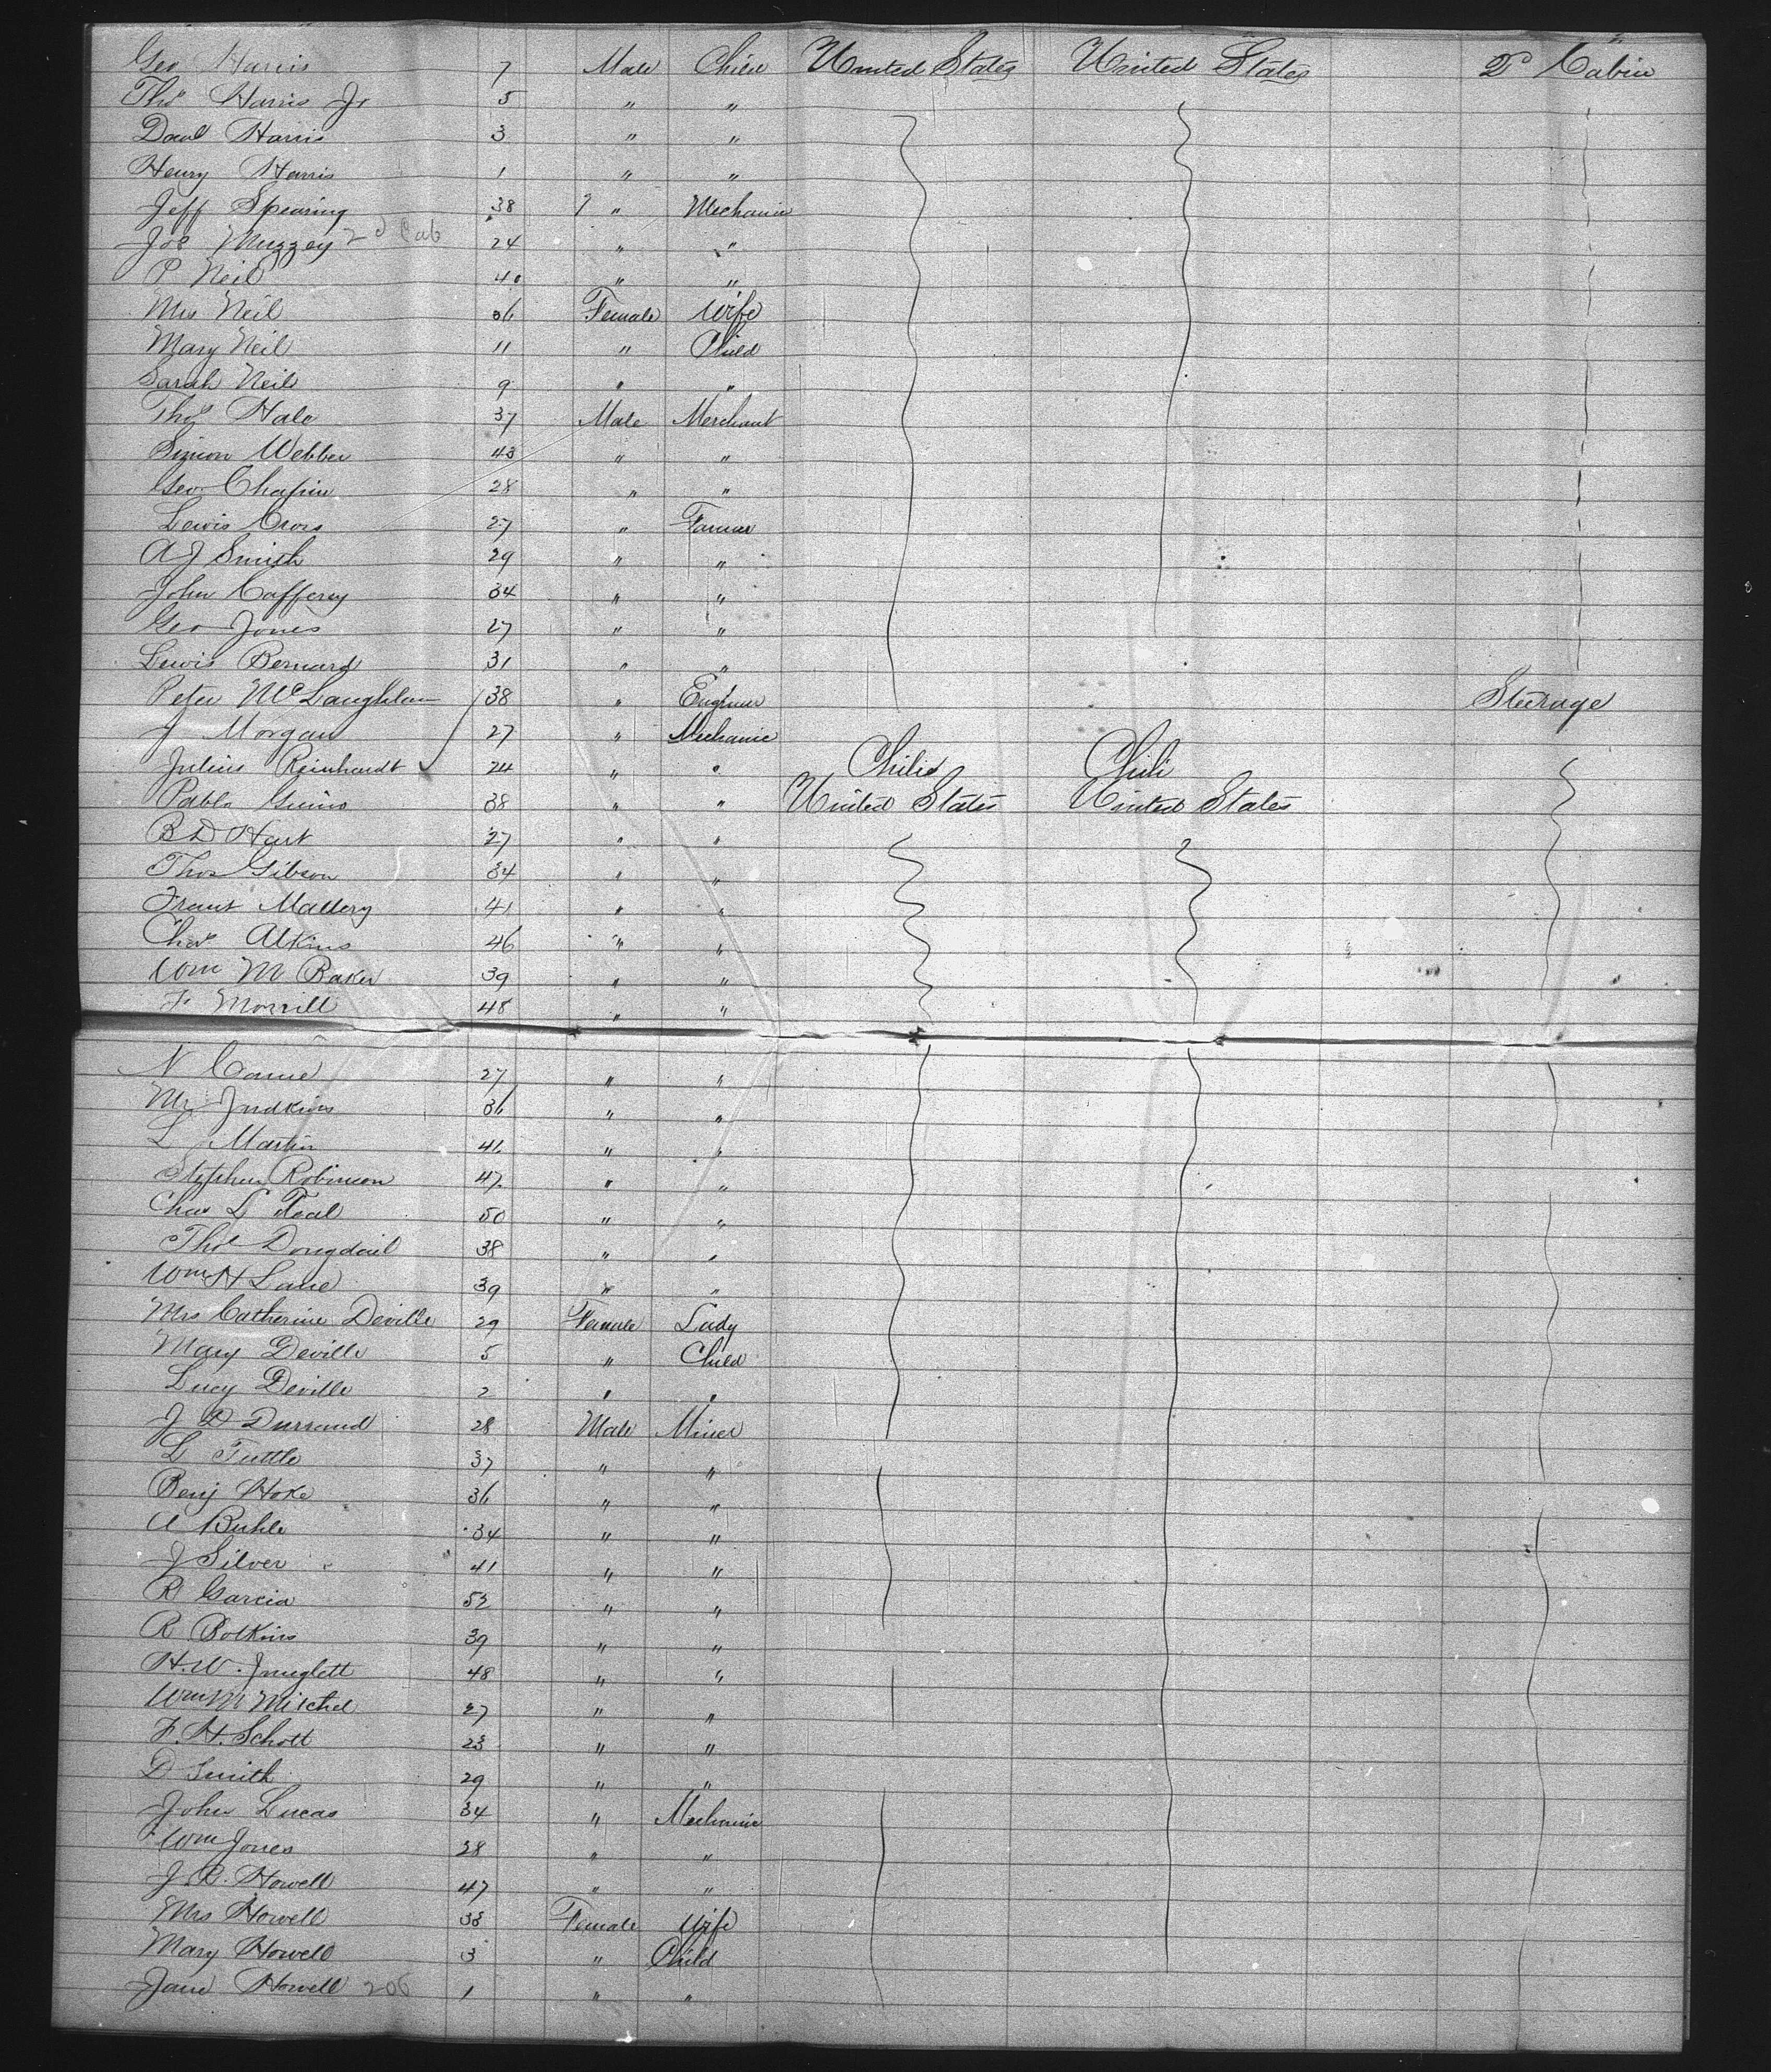 Geo Harris 7 Male Child United States United States 2d Cabin
Thos Harris Jr 5 " "
Davd Harris 3 " "
Henry Harris 1 " "
Jeff Spearing 38 " Mechanic
Joe Muzzey 2d Cab 24 " "
P Neil 40 " "
Mrs Neil 36 Female Wife
Mary Neil 11 " Child
Sarah Neil 9 " "
Thos Hale 37 Male Merchant
Simon Webber 43 " "
Geo Chapin 28 " "
Lewis Cross 27 " Farmer
A J Smith 29 " "
John Cafferey 34 " "
Geo Jones 27 " "
Lewis Bernard 31 " "
Peter McLaughlen 38 " Engineer Steerage
J Morgan 27 " Mechanic
Julius Reinhardt 24 " " Chili Chili
Pablo 38 " " United States United States
B D Hart 27 " "
Thos Gibson 34 " "
Frank Mallery 41 " "
Chas Atkins 46 " "
Wm M Baker 39 " "
F Morrill 48 " "
N 27 " "
Mr Judkins 36 " "
L Martin 41 " "
Stephen Robinson 47 " "
Chas L Teal 50 " "
Thos Dougdail 38 " "
Wm H Lane 39 " "
Mrs Catherine Deville 29 Female Lady
Mary Deville 5 " Child
Lucy Deville 2 " "
J D Durrand 28 Male Miner
L Tuttle 37 " "
Benj Hoke 36 " "
A Buhle 34 " "
J Silver 41 " "
R Garcia 52 " "
R Botkins 39 " "
H. W. 48 " "
Wm M Mitchel 27 " "
F. H. Schott 23 " "
D Smith 29 " "
John Lucas 34 " Mechanic
Wm Jones 28 " "
J. B. Howell 47 " "
Mrs Howell 38 Female Wife
Mary Howell 3 " Child
Jane Howell 206 1 " "